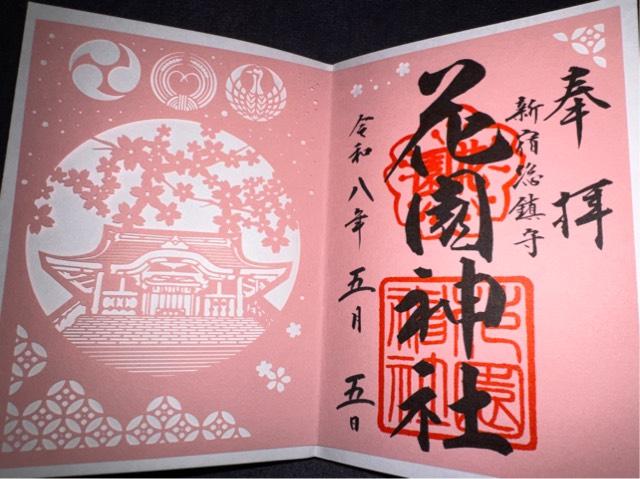 奉拝
新宿総鎮守
花園神社
令和八年 五月 五日
花園
花園神社